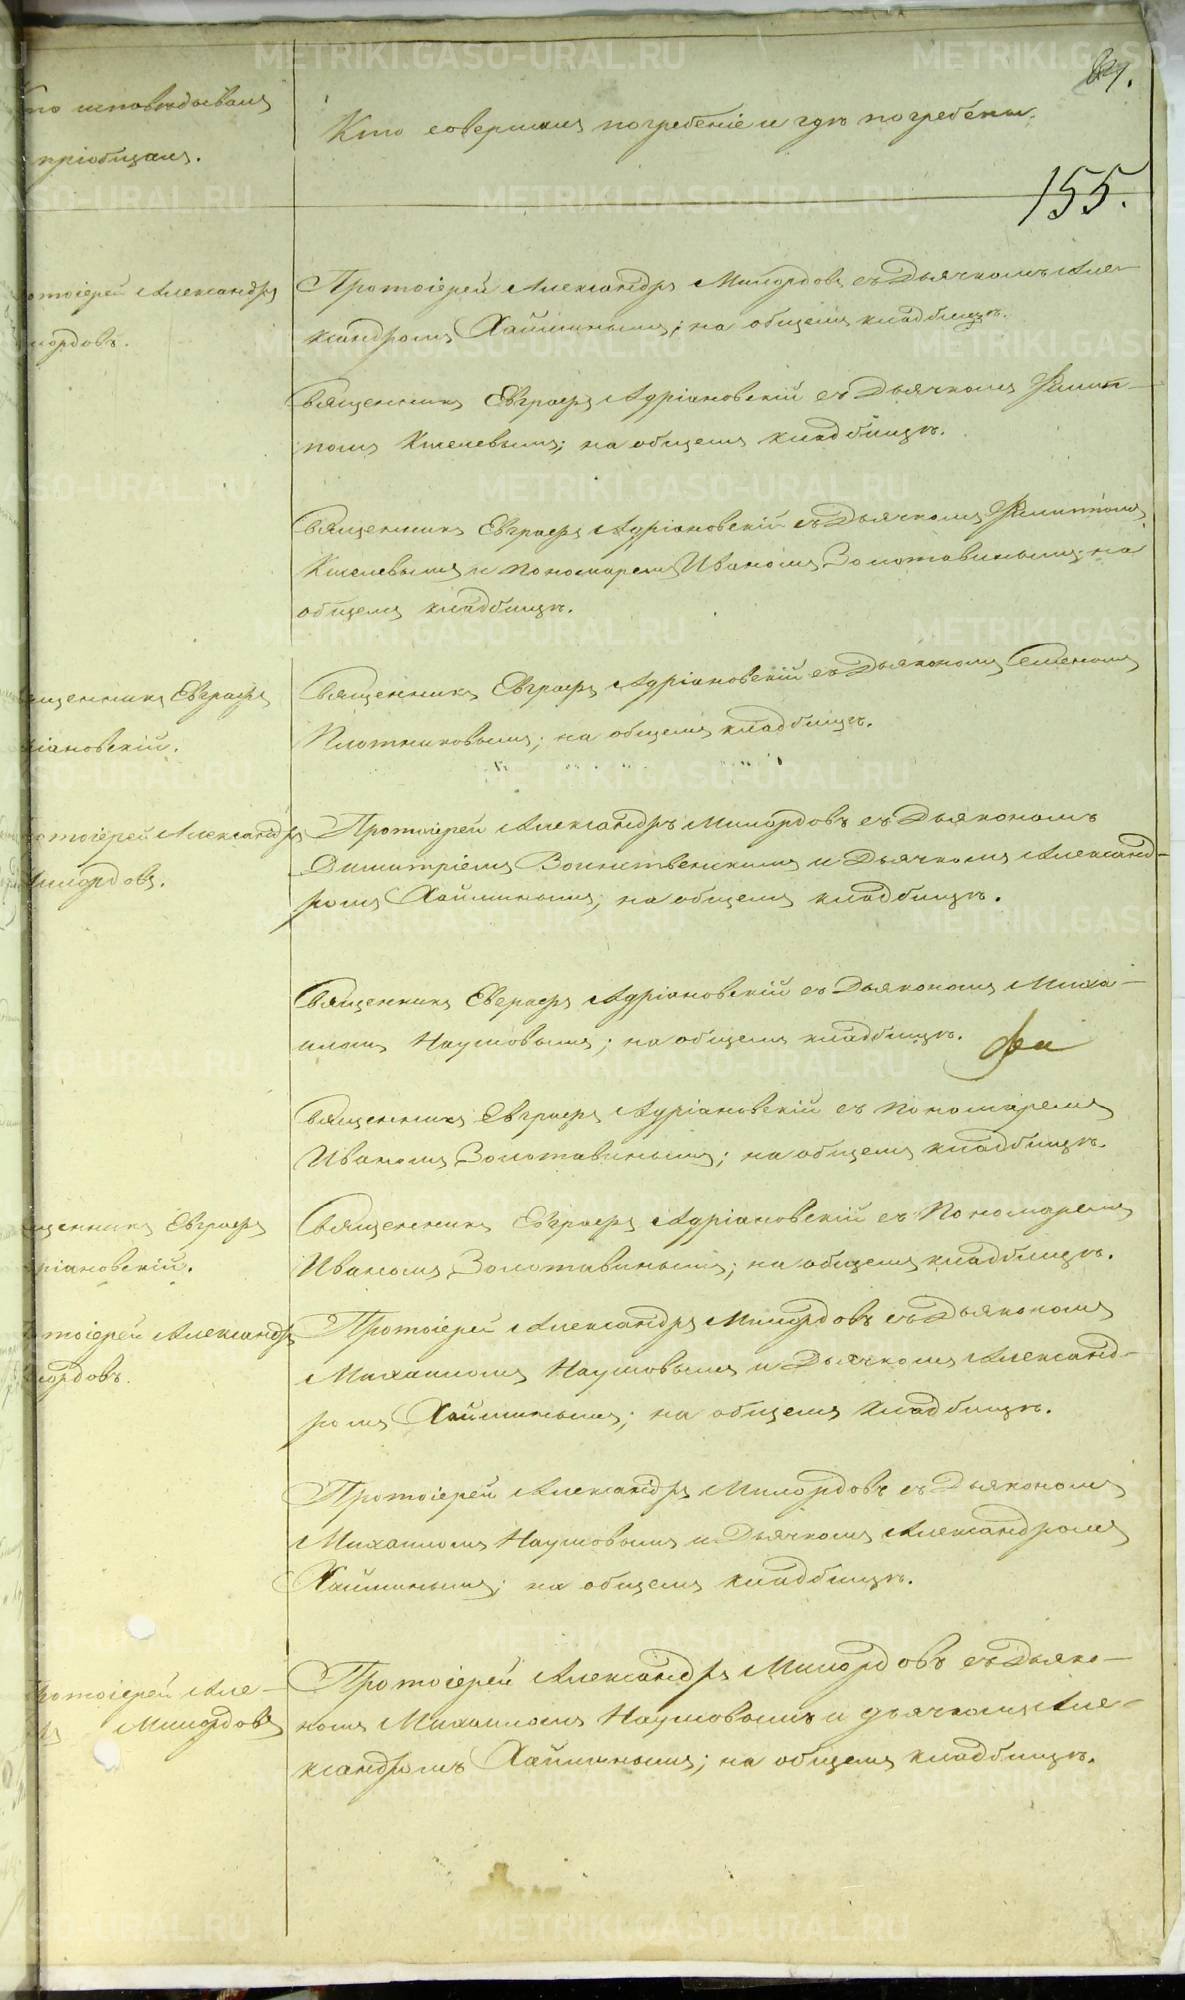 Кто исповѣдывалъ
пріобщалъ.
Кто совершалъ погребеніе и гдѣ погребены.
155.
Протоіерей Александръ
Милордовъ.
Протоіерей Александръ Милордовъ съ Дьячкомъ Але-
ксандромъ Хайминымъ; на общемъ кладбищѣ.
Священникъ Евграфъ Адріановскій съ Дьячкомъ Филип-
помъ Киселевымъ; на общемъ кладбищѣ.
Священникъ Евграфъ Адріановскій съ Дьячкомъ Филиппомъ
Киселевымъ и Пономаремъ Иваномъ Золотавинымъ; на
общемъ кладбищѣ.
Священникъ Евграфъ
Адріановскій.
Священникъ Евграфъ Адріановскій съ Дьякономъ Семеномъ
Плотниковымъ; на общемъ кладбищѣ.
Протоіерей Александръ
Милордовъ.
Протоіерей Александръ Милордовъ съ Дьякономъ
Димитріемъ Воинственскимъ и Дьячкомъ Александ-
ромъ Хайминымъ; на общемъ кладбищѣ.
Священникъ Евграфъ Адріановскій съ Дьякономъ Миха-
иломъ Наумовымъ; на общемъ кладбищѣ.
Священникъ Евграфъ Адріановскій съ Пономаремъ
Иваномъ Золотавинымъ; на общемъ кладбищѣ.
Священникъ Евграфъ
Адріановскій.
Священникъ Евграфъ Адріановскій съ Пономаремъ
Иваномъ Золотавинымъ; на общемъ кладбищѣ.
Протоіерей Александръ
Милордовъ.
Протоіерей Александръ Милордовъ съ Дьякономъ
Михаиломъ Наумовымъ и Дьячкомъ Александ-
ромъ Хайминымъ; на общемъ кладбищѣ.
Протоіерей Александръ Милордовъ съ Дьякономъ
Михаиломъ Наумовымъ и Дьячкомъ Александромъ
Хайминымъ; на общемъ кладбищѣ.
Протоіерей Але-
Милордовъ
Протоіерей Александръ Милордовъ съ Дьяко-
номъ Михаиломъ Наумовымъ и дьячкомъ Але-
ксандромъ Хайминымъ; на общемъ кладбищѣ.
METRIKI.GASO-URAL.RU